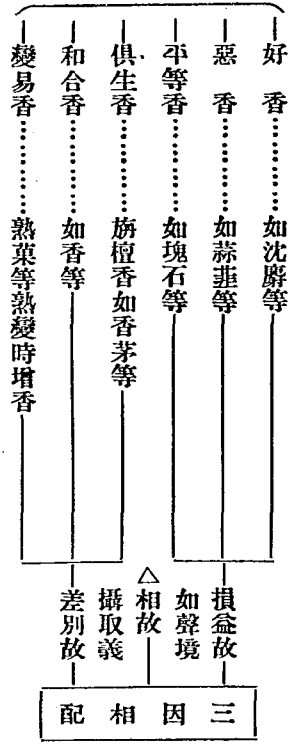 好　香………如沈麝等
惡　香………如蒜韮等
平等香………如塊石等
俱生香………旃檀香如香茅等
和合香………如香等
變易香………熟菓等熟變時增香
損益故
如聲境
△相故
攝取義
差別故
三因相配